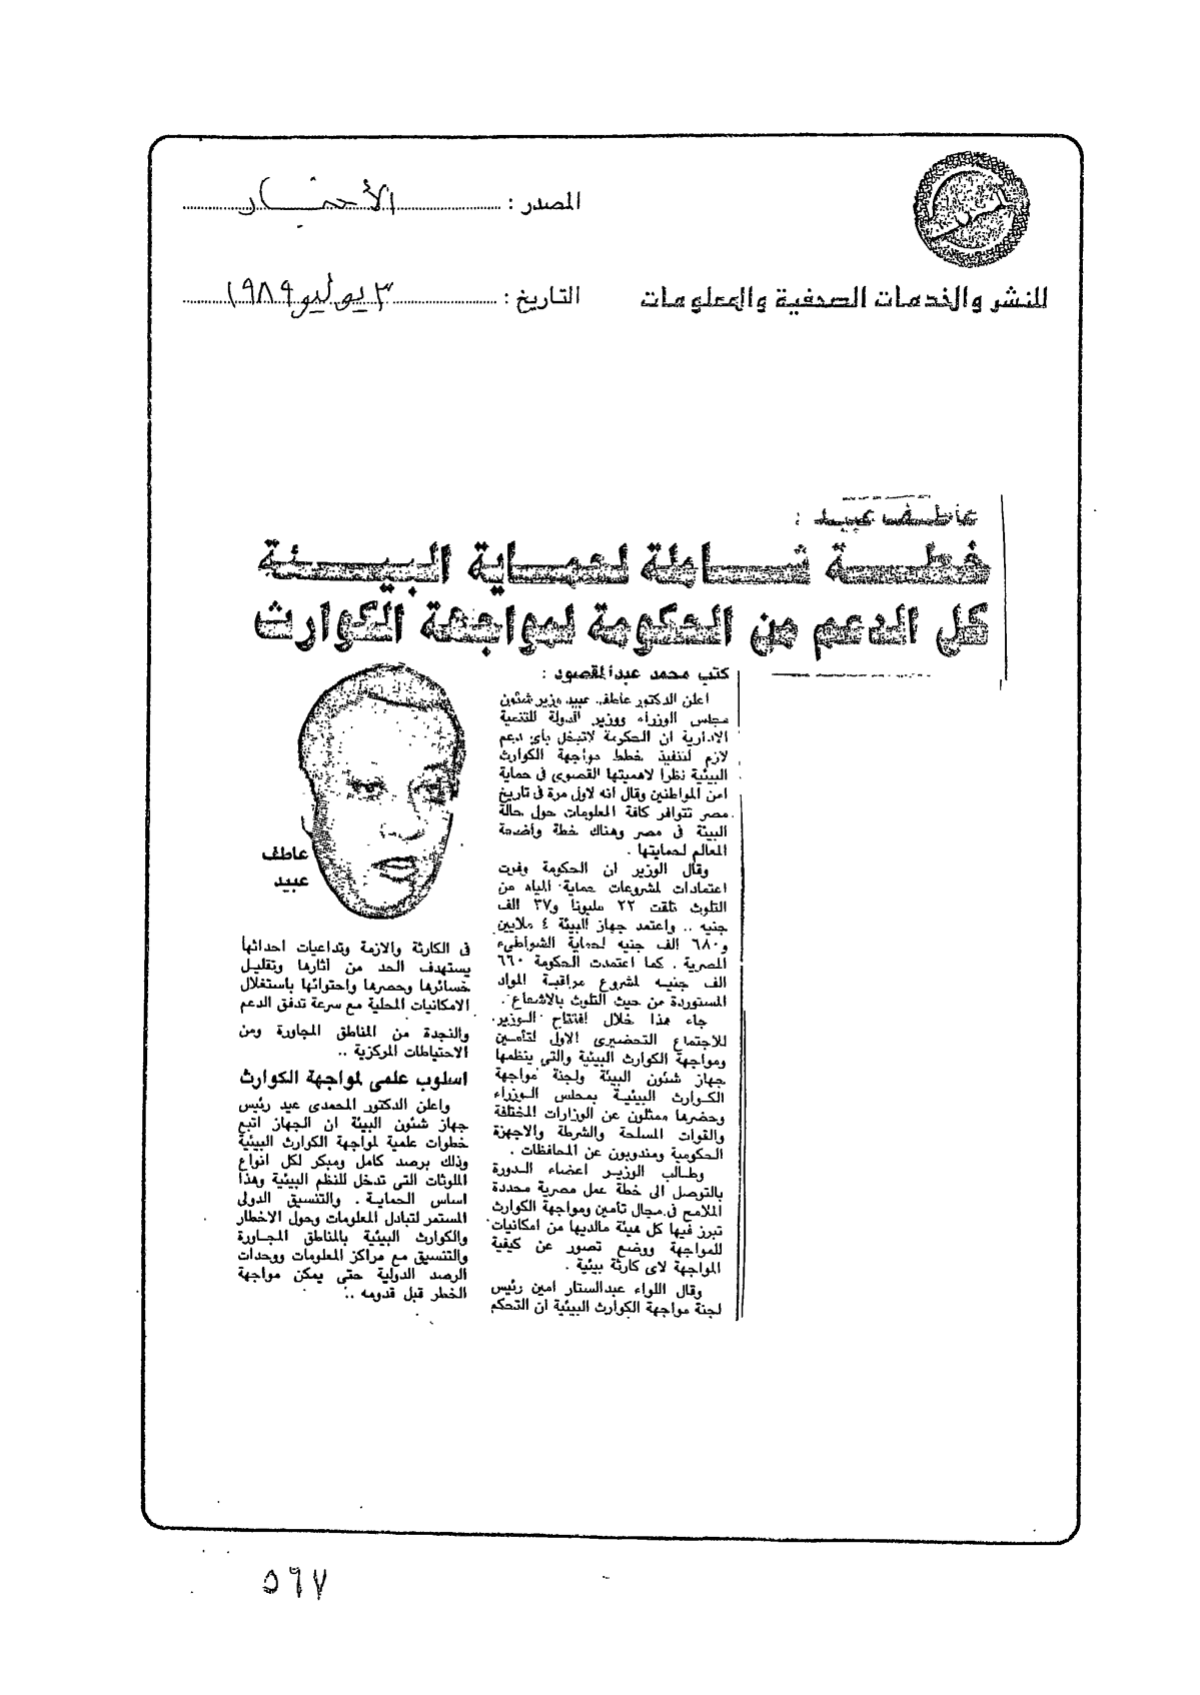 المصدر : الأخبار
للنشر والخدمات الصحفية والمعلومات
التاريخ : ٣ يوليو ١٩٨٩
عاطف عبيد :
خطة شاملة لحماية البيئة
كل الدعم من الحكومة لمواجهة الكوارث
كتب محمد عبدالمقصود :
اعلن الدكتور عاطف عبيد وزير شئون
مجلس الوزراء ووزير الدولة للتنمية
الادارية ان الحكومة لاتبخل بأى دعم
لازم لتنفيذ خطط مواجهة الكوارث
البيئية نظرا لاهميتها القصوى فى حماية
امن المواطنين وقال انه لاول مرة فى تاريخ
مصر تتوافر كافة المعلومات حول حالة
البيئة فى مصر وهناك خطة واضحة
المعالم لحمايتها .
وقال الوزير ان الحكومة وفرت
اعتمادات لمشروعات حماية المياه من
التلوث بلغت ٢٢ مليونا و٣٧ الف
جنيه .. واعتمد جهاز البيئة ٤ ملايين
و٦٨٠ الف جنيه لحماية الشواطىء
المصرية . كما اعتمدت الحكومة ٦٦٠
الف جنيه لمشروع مراقبة المواد
المستوردة من حيث التلوث بالاشعاع .
جاء هذا خلال افتتاح الوزير
للاجتماع التحضيرى الاول لتأمين
ومواجهة الكوارث البيئية والتى ينظمها
جهاز شئون البيئة ولجنة مواجهة
الكوارث البيئية بمجلس الوزراء
وحضرها ممثلون عن الوزارات المختلفة
والقوات المسلحة والشرطة والاجهزة
الحكومية ومندوبون عن المحافظات .
وطالب الوزير اعضاء الدورة
بالتوصل الى خطة عمل مصرية محددة
الملامح فى مجال تأمين ومواجهة الكوارث
تبرز فيها كل هيئة مالديها من امكانيات
للمواجهة ووضع تصور عن كيفية
المواجهة لاى كارثة بيئية .
وقال اللواء عبدالستار امين رئيس
لجنة مواجهة الكوارث البيئية ان التحكم
عاطف
عبيد
فى الكارثة والازمة وتداعيات احداثها
يستهدف الحد من آثارها وتقليل
خسائرها وحصرها واحتوائها باستغلال
الامكانيات المحلية مع سرعة تدفق الدعم
والنجدة من المناطق المجاورة ومن
الاحتياطات المركزية ..
اسلوب علمى لمواجهة الكوارث
واعلن الدكتور المحمدى عيد رئيس
جهاز شئون البيئة ان الجهاز اتبع
خطوات علمية لمواجهة الكوارث البيئية
وذلك برصد كامل ومبكر لكل انواع
الملوثات التى تدخل للنظم البيئية وهذا
اساس الحماية . والتنسيق الدولى
المستمر لتبادل المعلومات وحول الاخطار
والكوارث البيئية بالمناطق المجاورة
والتنسيق مع مراكز المعلومات ووحدات
الرصد الدولية حتى يمكن مواجهة
الخطر قبل قدومه ..
٥٦٧